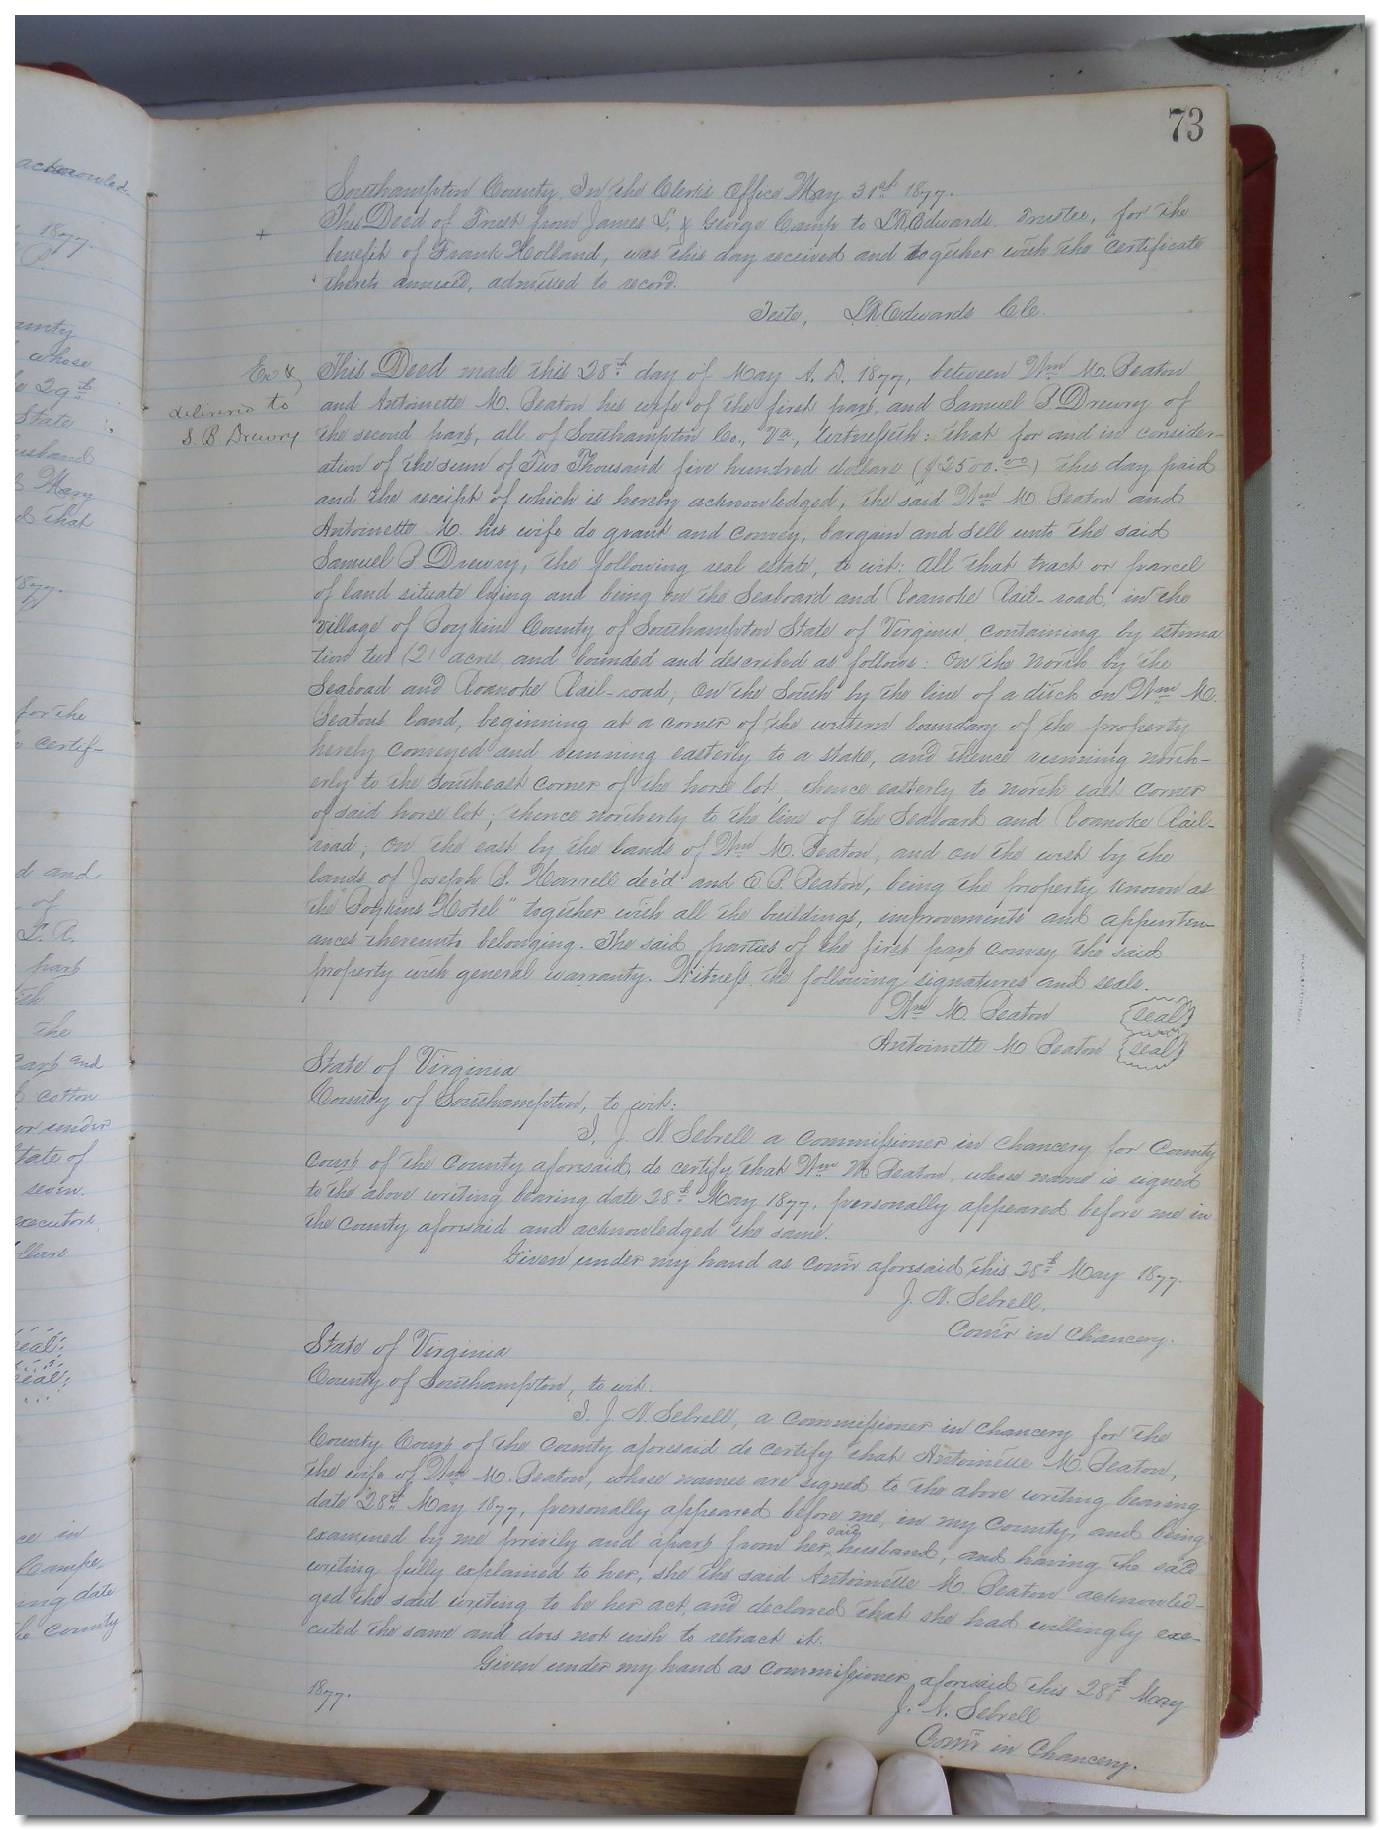 acknowled-
1877.
unty
whose
29th
State
usband
Mary
that
1877.
for the
certif-
d and
of
T. A.
part
the
Part and
cotton
or under
tate of
seven.
executors,
llars
seal
seal
ce in
Camp,
ing date
the County
73
Southampton County, In the Clerk's Office May 31st 1877.
This Deed of Trust from James L. & George Camp to L.R. Edwards, Trustee, for the
+
benefit of Frank Holland, was this day received and together with the certificate
thereto annexed, admitted to record.
Teste, L.R. Edwards Clk.
Ex &
delivered to
S. B Drewry
This Deed made this 28th day of May A. D. 1877, between Wm M. Beaton
and Antoinette M. Beaton his wife of the first part, and Samuel B Drewry of
the second part, all of Southampton Co., Va., Witnesseth: that for and in consider-
ation of the sum of Two Thousand five hundred dollars ($2500.00) this day paid
and the receipt of which is hereby acknowledged, the said Wm M Beaton and
Antoinette M. his wife do grant and convey, bargain and sell unto the said
Samuel B Drewry, the following real estate, to wit: All that tract or parcel
of land situate lying and being on the Seaboard and Roanoke Rail-road, in the
village of Boykins County of Southampton State of Virginia, containing by estima
tion two (2) acres, and bounded and described as follows: On the north by the
Seaboad and Roanoke Rail-road; On the South by the line of a ditch on Wm M.
Beatons land, beginning at a corner of the western boundary of the property
hereby conveyed and running easterly to a stake, and thence running north-
erly to the southeast corner of the horse lot, thence easterly to north east corner
of said horse lot; thence northerly to the line of the Seaboard and Roanoke Rail-
road; On the east by the lands of Wm M. Beaton, and on the west by the
lands of Joseph S. Harrell dec'd and E. P. Beaton, being the property known as
the "Boykins Hotel" together with all the buildings, improvements and appurten-
ances thereunto belonging. The said parties of the first part convey the said
property with general warranty. Witness the following signatures and seals.
Wm M. Beaton (seal)
Antoinette M Beaton (seal)
State of Virginia
County of Southampton, to wit:
I, J. N. Sebrell a commissioner in chancery for County
Court of the County aforesaid, do certify that Wm M Beaton, whose name is signed
to the above writing bearing date 28th May 1877, personally appeared before me in
the County aforesaid and acknowledged the same.
Given under my hand as Com'r aforesaid this 28th May 1877.
J. N. Sebrell,
Com'r in Chancery.
State of Virginia
County of Southampton, to wit.
I, J. N. Sebrell, a Commissioner in chancery for the
County Court of the County aforesaid do certify that Antoinette M. Beaton,
the wife of Wm M. Beaton, whose names are signed to the above writing bearing
date 28th May 1877, personally appeared before me, in my County, and being
examined by me privily and apart from her said husband, and having the said
writing fully explained to her, she the said Antoinette M. Beaton acknowled-
ged the said writing to be her act, and declared that she had willingly exe-
cuted the same and does not wish to retract it.
Given under my hand as Commissioner aforesaid this 28th May
1877.
J. N. Sebrell
Com'r in Chancery.